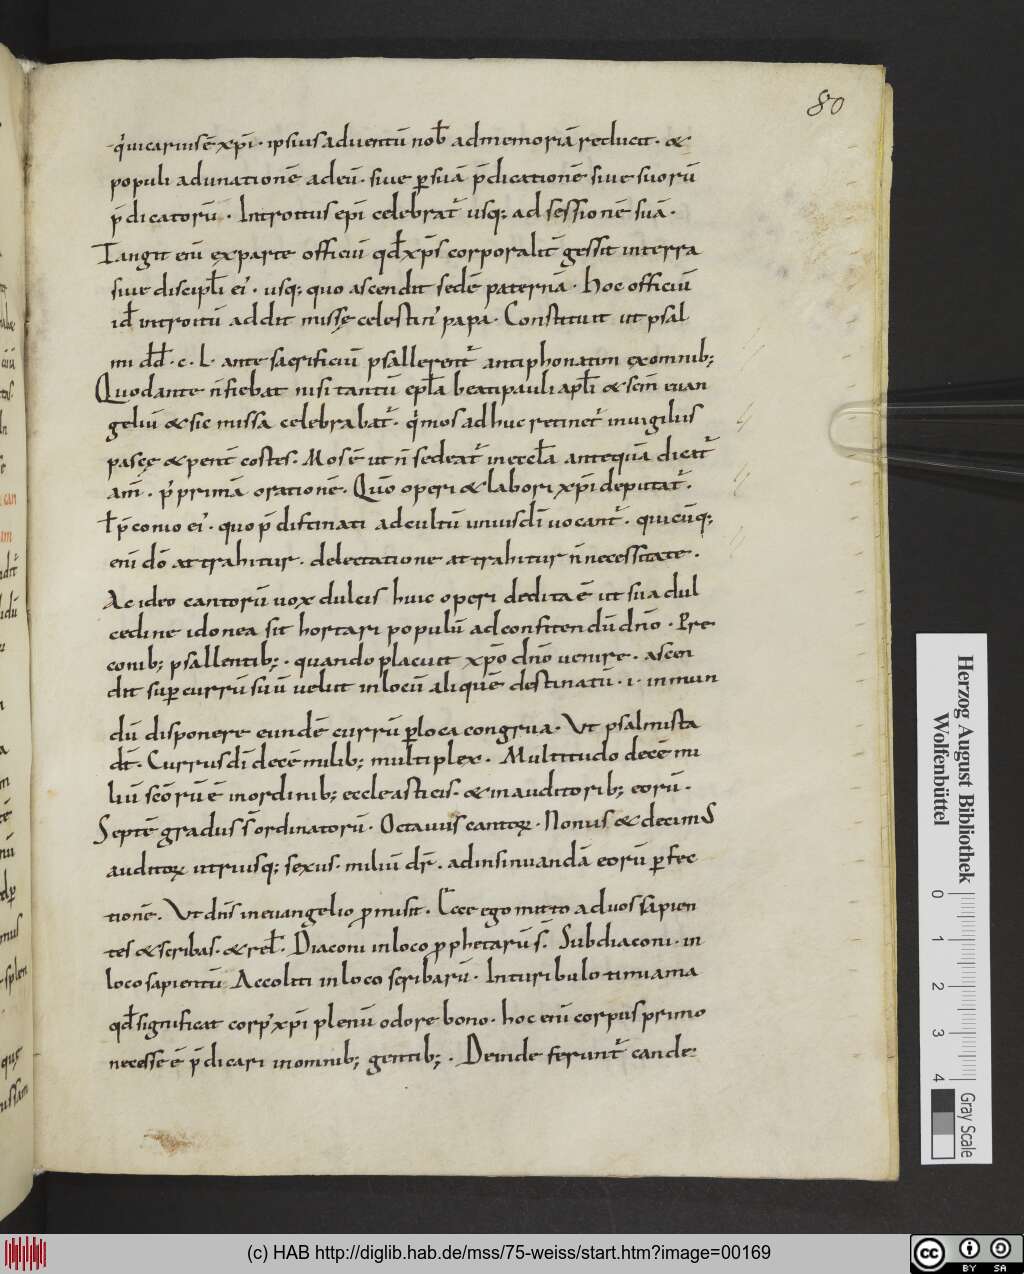 80
q'uicarius ē xp̄i · ipsius aduentū nob̄ ad memoriā reducit · &
populi adunationē ad eū · siue p̱suā p̄dicationē siue suorū
p̄dicatorū · Introitus ep̄i celebrat̄ usq; ad sessionē suā ·
Tangit eni ex parte officiū qd̄ xp̄s corporalit̄ gessit in terra
siue discipl̄i ei' · usq; quo ascendit sedē paternā · Hoc officiū
id̄ introitū addit missę celestin' papa · Constituit ut psal
mi dd̄ · c · L · ante sacrificiū psallerent̄ antiphonatim ex omnib;
Quod ante n̄ fiebat nisi tantū epl̄a beati pauli apl̄i & scm̄ euan
geliū & sic missa celebrabat̄ · q' mos adhuc retinet̄ in uigiliis
pascę & pent̄ costes · Mos ē ut n̄ sedeat̄ in eccl̄a antequā dicat̄
am̄ · p' primā orationē · Quō operi & labori xp̄i deputat̄ ·
ł p̄conio ei' · quo p̄distinati ad cultū unius dī uocant̄ · quicūq;
eni dō attrahitur · delectatione attrahitur n̄ necessitate ·
Ac ideo cantorū uox dulcis huic operi dedita ē ut sua dul
cedine idonea sit hortari populū ad confitendū dn̄o · Pre
conib; psallentib; · quando placuit xp̄o dn̄o uenire · ascen
dit sup currū suū uelut in locū aliquē destinatū · i · in mun
dū disponere eundē currū p̱ loca congrua · Ut psalmista
dt̄ · Currus dī decē milib; multiplex · Multitudo decē mi
liū scōrū ē in ordinib; ecclesticis · & in auditorib; eorū ·
Septē gradus s̄ ordinatorū · Octauus cantoꝝ · Nonus & decimus
auditoꝝ utriusq; sexus · miliū dr̄ · ad insinuandā eorū p̱fec
tionē · Ut dn̄s in euangelio promisit · Ecce ego mitto ad uos sapien
tes & scribas · & rel̄ · Diaconi in loco prophetarū s̄ · Subdiaconi · in
loco sapientū Accoliti in loco scribarū · In turibulo timiama
qd̄ significat corp' xp̄i plenū odore bono · hoc eni corpus primo
necesse ē p̄dicari in omnib; gentib; · Deinde ferunt̄ cande
Herzog August Bibliothek
Wolfenbüttel
0 1 2 3 4
Gray Scale
(c) HAB http://diglib.hab.de/mss/75-weiss/start.htm?image=00169
cc BY SA